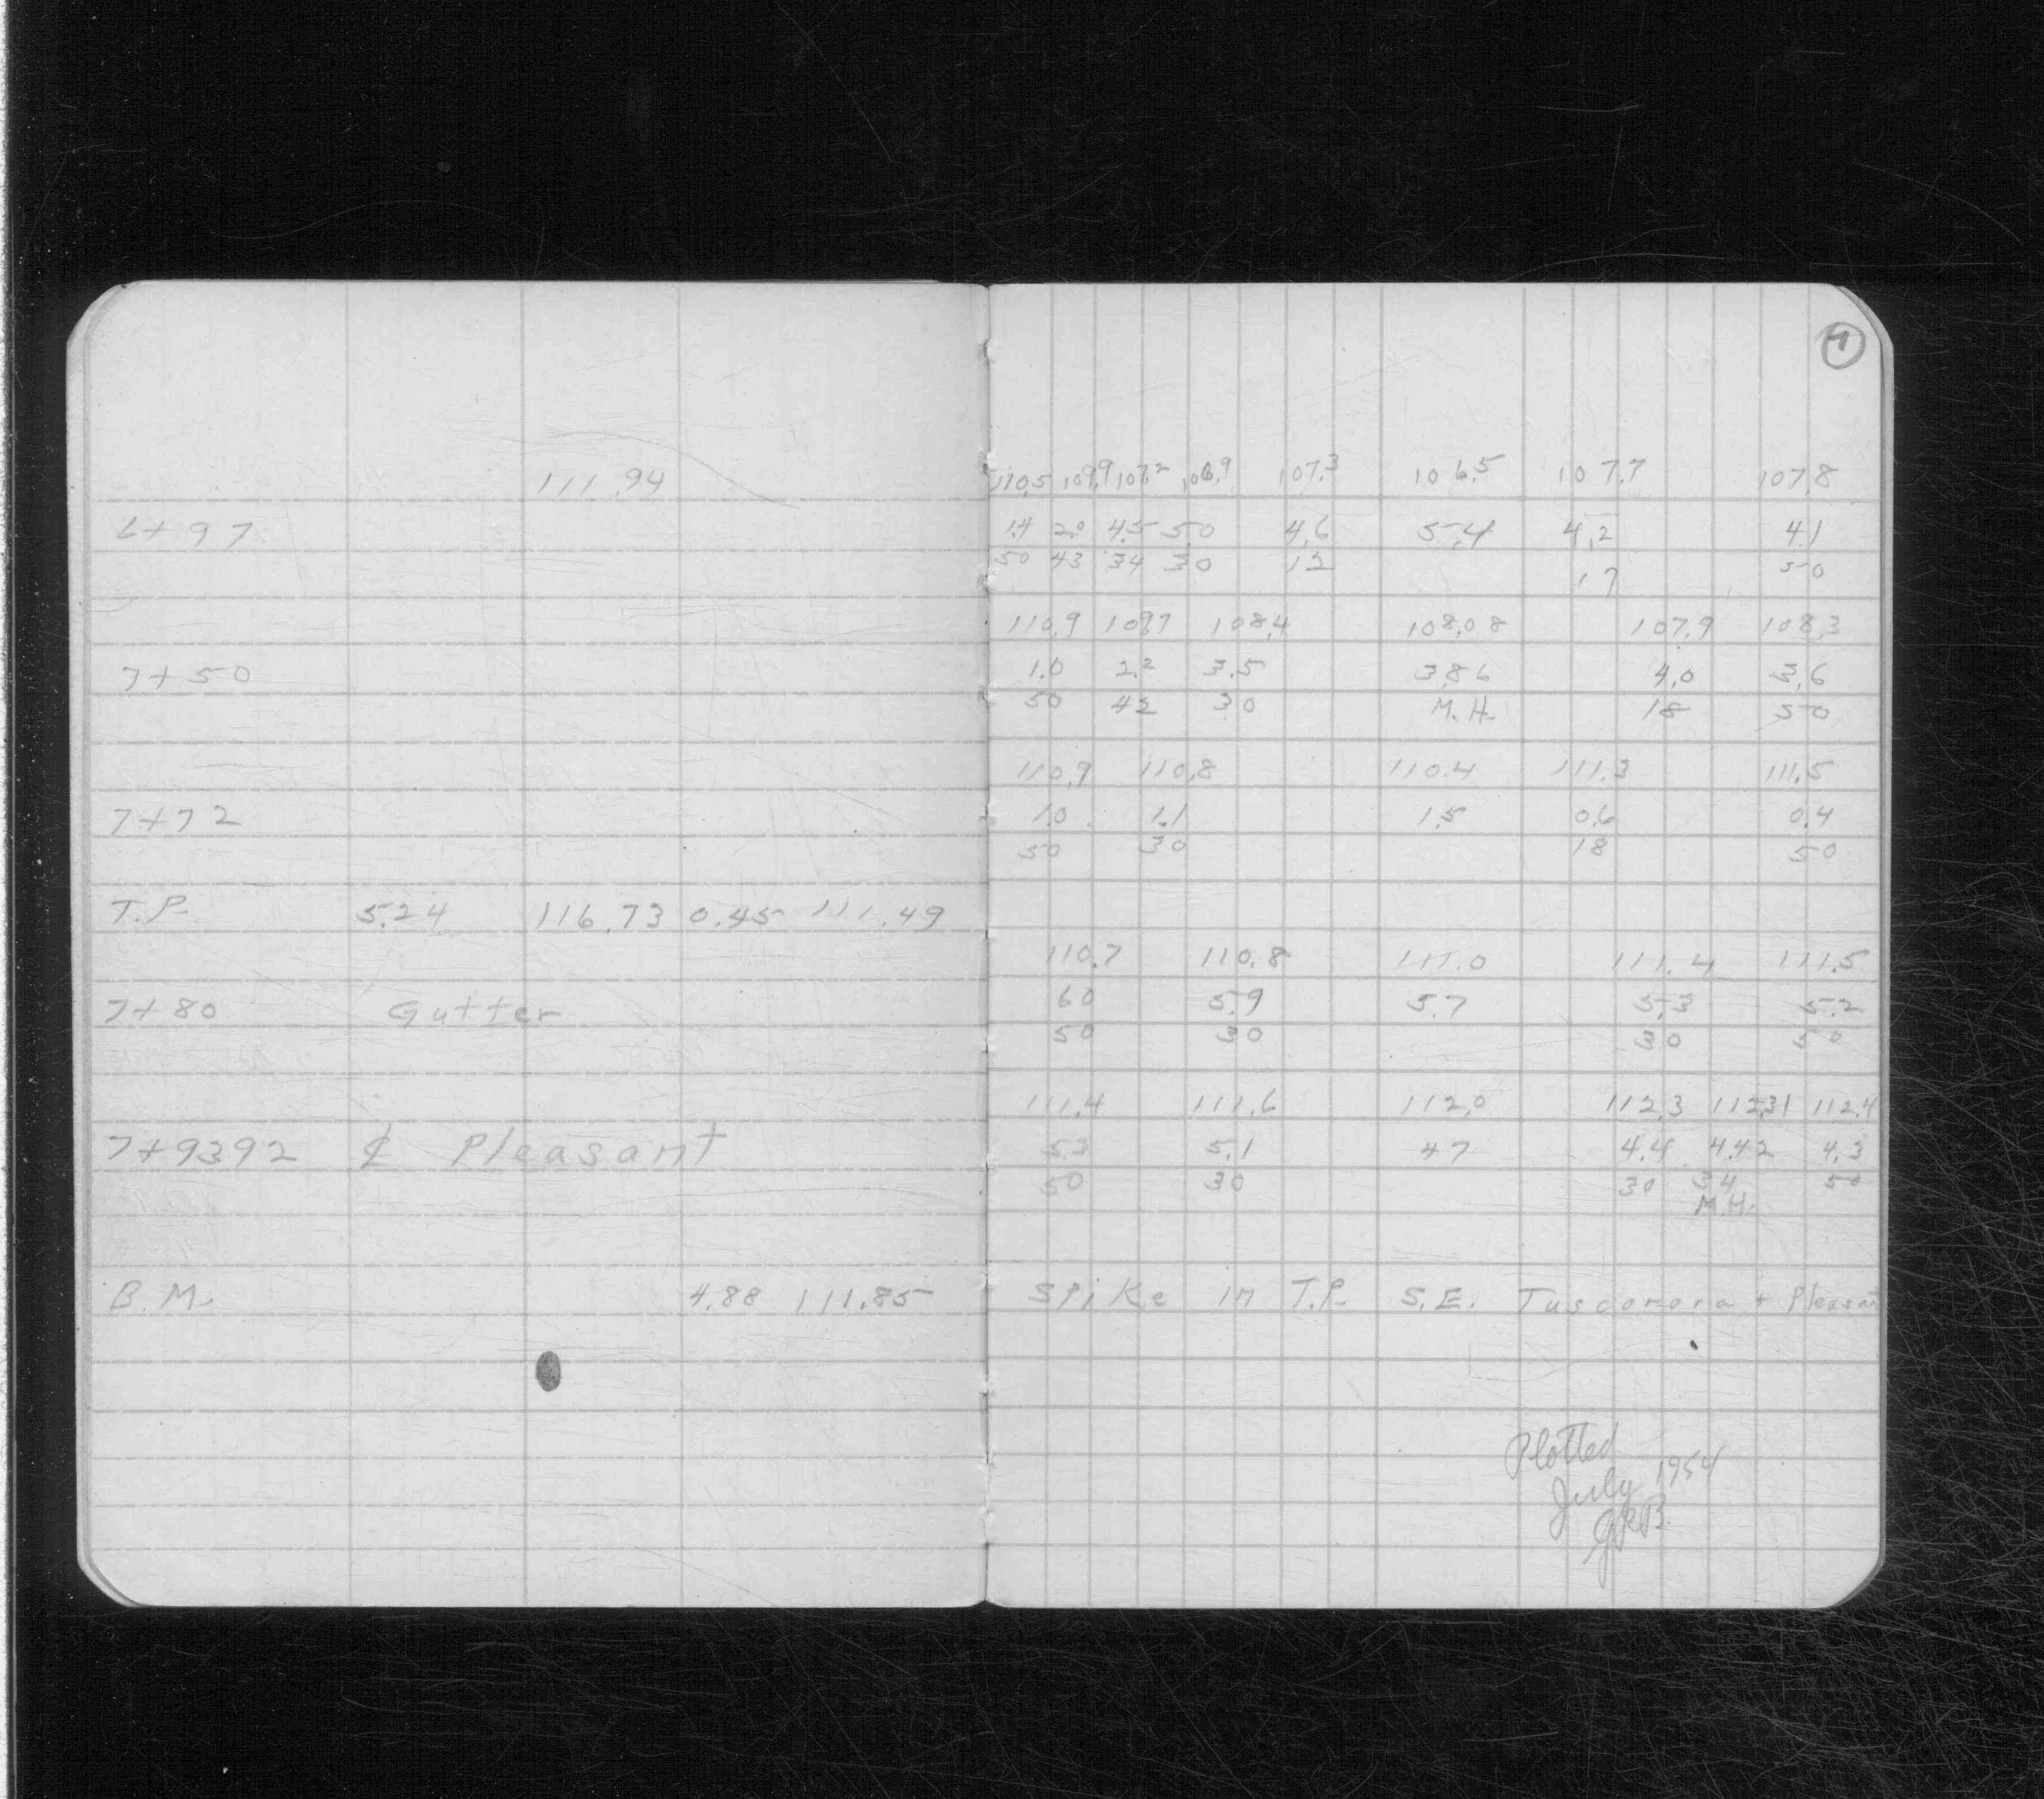 111.94
6+97
7+50
7+72
T.P. 5.24 116.73 0.45 111.49
7+80 Gutter
7+9392 ₵ Pleasant
B.M. 4.88 111.85
110.5 109.9 107.2 106.9 107.3 106.5 107.7 107.8
1.4 2.0 4.5 50 4.6 5.4 4.2 4.1
50 43 34 30 12 17 50
110.9 109.7 108.4 108.08 107.9 108.3
1.0 2.2 3.5 3.86 4.0 3.6
50 42 30 M.H. 18 50
110.9 110.8 110.4 111.3 111.5
1.0 1.1 1.5 0.6 0.4
50 30 18 50
110.7 110.8 111.0 111.4 111.5
60 5.9 5.7 5.3 5.2
50 30 30 50
111.4 111.6 112.0 112.3 112.31 112.4
5.3 5.1 47 4.4 4.42 4.3
50 30 30 34 50
M.H.
Spike in T.P. S.E. Tuscorora + Pleasant
Plotted
July 1954
GRB.